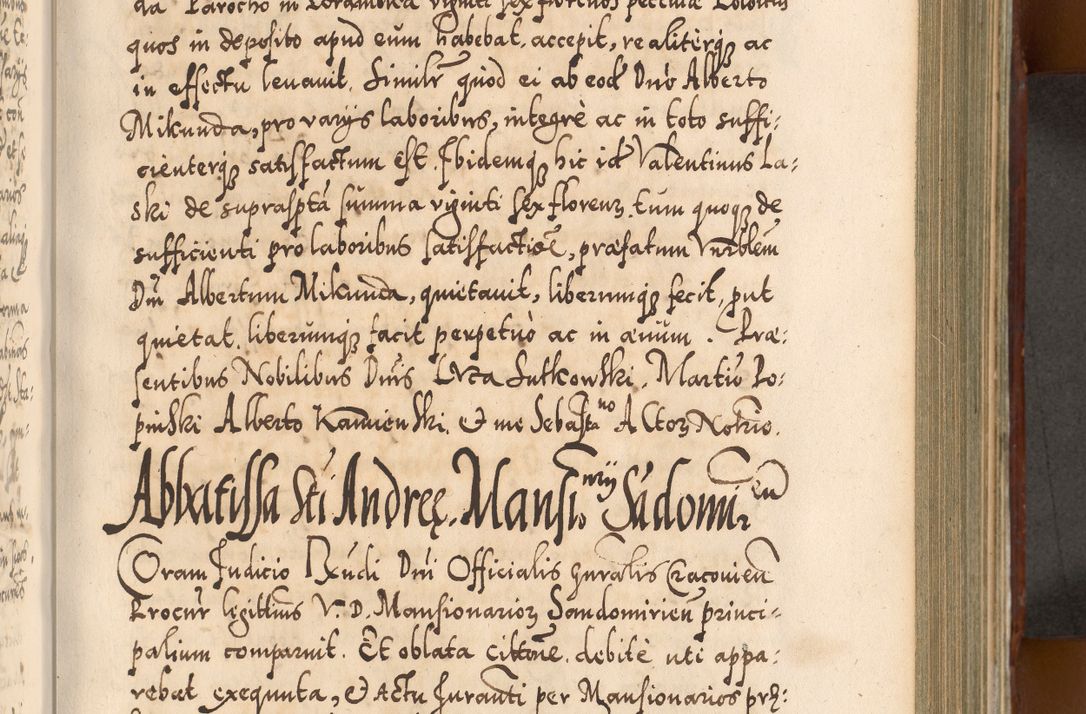 da Parocho in viginti sex florenos pecuniæ
quos in deposito apud eum habebat, accepit, realiterq₃ ac
in effectu leuauit. Similr quod ei ab eod Dno Alberto
Mikunda, pro varijs laboribus, integrè ac in toto suffi:
cienterq₃ satisfactum est. Ibidemq₃ hic id Valentinus La:
ski de suprasptá summa viginti sex florenꝝ, tum quoq₃ de
sufficienti pro laboribus satisfactiõe, præfatum Vnrblem
Dm Albertum Mikunda, quietauit, liberumq₃ fecit, put
quietat, liberumq₃ facit perpetuò ac in æuum. Præ:
sentibus Nobilibus Dnis Luca Sutkowski, Martio Lo:
pinski Alberto Kamienski, & me Sebastiano Actoꝝ Notrio.
Abbatissa Sti Andreę, Mansiorij Sadomirien
Coram Judicio Rndi Dni Officialis gnralis Cracovien
Procur legittims V. D. Mansionarioꝝ Sandomirien princi-
palium comparuit. Et oblata cittone, debitè uti appa:
rebat exequuta, & Actu Juranti per Mansionarios prh: